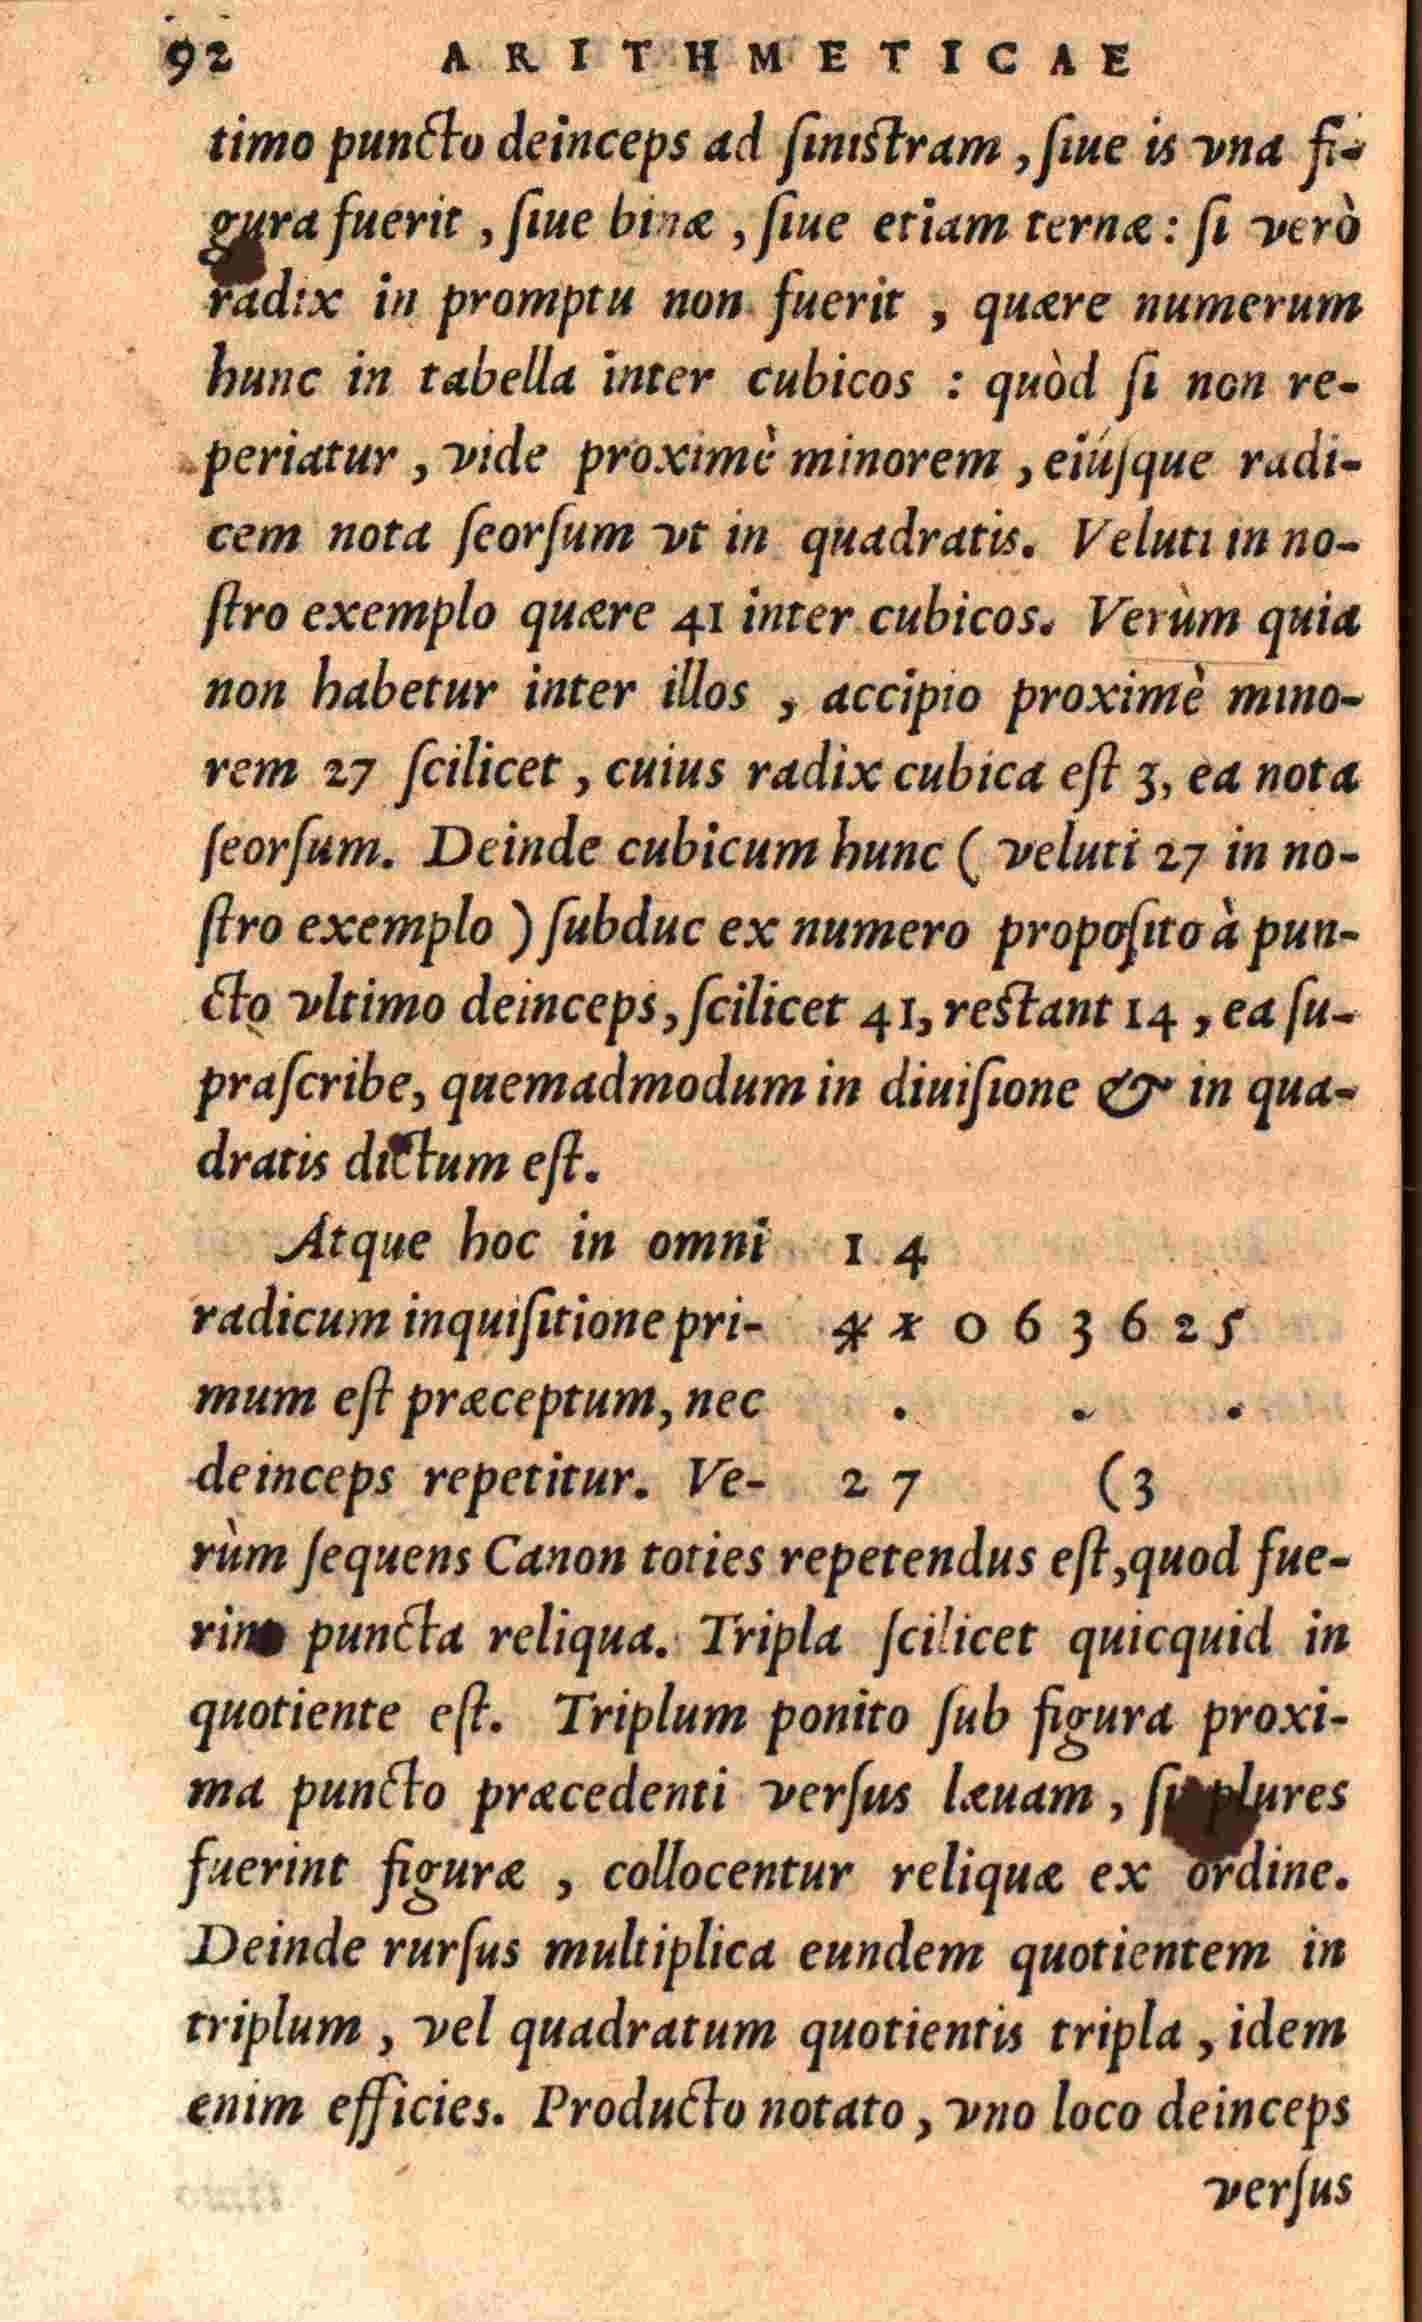 92 ARITHMETICAE
timo puncto deinceps ad ſiniſtram, ſiue is vna fi-
gura fuerit, ſiue binæ, ſiue etiam ternæ: ſi verò
radix in promptu non fuerit, quære numerum
hunc in tabella inter cubicos: quòd ſi non re-
periatur, vide proximè minorem, eiúſque radi-
cem nota ſeorſum vt in quadratis. Veluti in no-
ſtro exemplo quære 41 inter cubicos. Verùm quia
non habetur inter illos, accipio proximè mino-
rem 27 ſcilicet, cuius radix cubica eſt 3, ea nota
ſeorſum. Deinde cubicum hunc (veluti 27 in no-
ſtro exemplo) ſubduc ex numero propoſito à pun-
cto vltimo deinceps, ſcilicet 41, reſtant 14, ea ſu-
praſcribe, quemadmodum in diuiſione & in qua-
dratis dictum eſt.
Atque hoc in omni 1 4
radicum inquiſitione pri- 4 1 0 6 3 6 2 5
mum eſt præceptum, nec . . .
deinceps repetitur. Ve- 2 7 (3
rùm ſequens Canon toties repetendus eſt, quod fue-
rint puncta reliqua. Tripla ſcilicet quicquid in
quotiente eſt. Triplum ponito ſub figura proxi-
ma puncto præcedenti verſus læuam, ſi plures
fuerint figuræ, collocentur reliquæ ex ordine.
Deinde rurſus multiplica eundem quotientem in
triplum, vel quadratum quotientis tripla, idem
enim efficies. Producto notato, vno loco deinceps
verſus